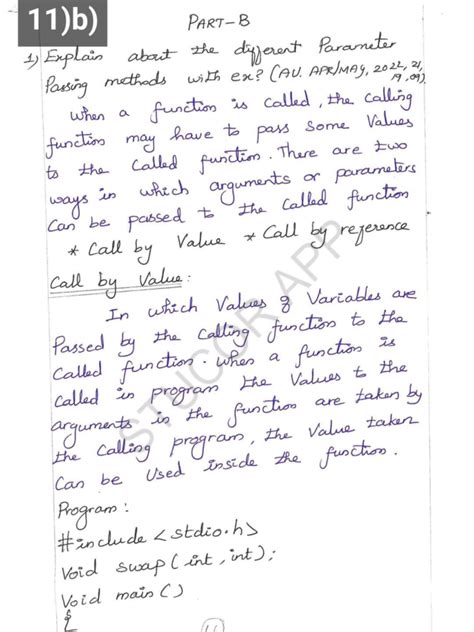 11)b)
PART-B
1) Explain about the different Parameter
Passing methods with ex? (AU. APR/MAY, 2022, 21,
19, 09)
When a function is called, the calling
function may have to pass some Values
to the called function. There are two
ways in which arguments or parameters
Can be passed to the called function
* Call by Value * Call by reference
Call by Value:
In which Values of Variables are
Passed by the calling function to the
Called function. When a function is
Called in program the Values to the
arguments in the function are taken by
the Calling program, the Value taken
Can be Used inside the function.
Program:
#include <stdio.h>
Void swap(int, int);
Void main()
{
STUCOR APP